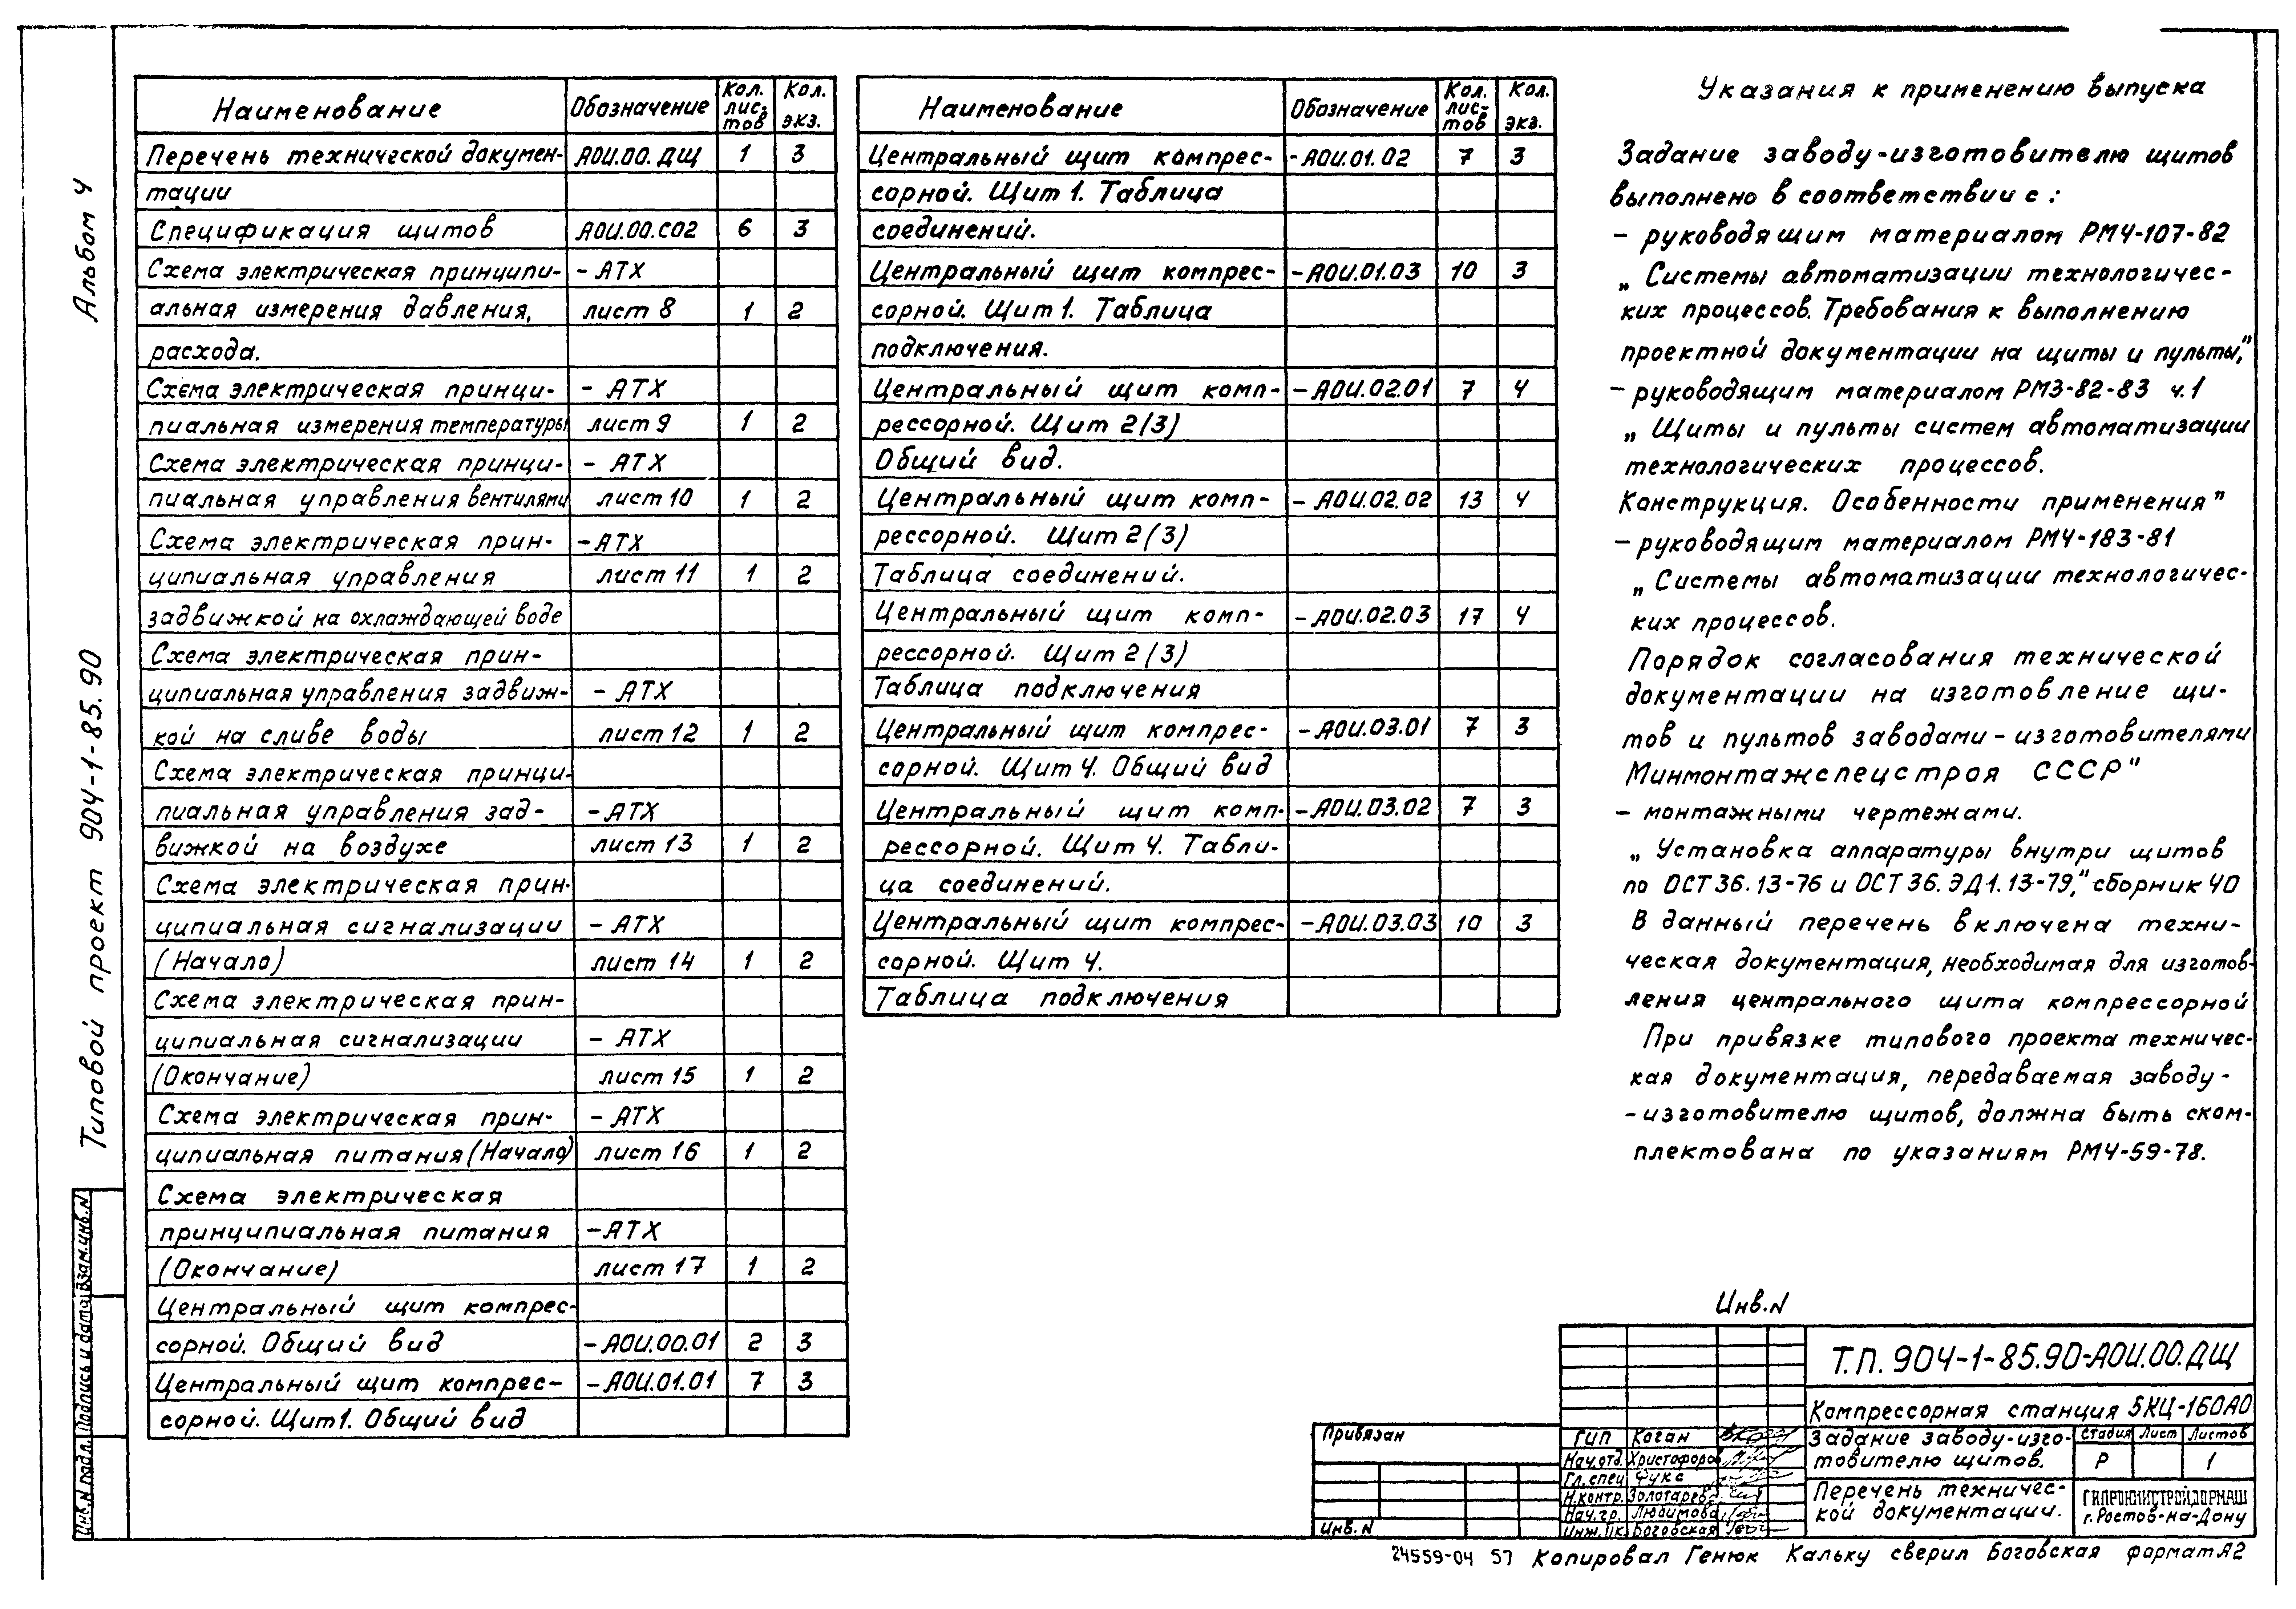 Альбом 4
Типовой проект 904-1-85.90
Взам.инв.N
Подпись и дата
Инв.N подл.
Наименование Обозначение Кол. лис- тов Кол. экз.
Перечень технической докумен- АОИ.00.ДЩ 1 3
тации
Спецификация щитов АОИ.00.СО2 6 3
Схема электрическая принципи- - АТХ
альная измерения давления, лист 8 1 2
расхода.
Схема электрическая принци- - АТХ
пиальная измерения температуры лист 9 1 2
Схема электрическая принци- - АТХ
пиальная управления вентилями лист 10 1 2
Схема электрическая прин- -АТХ
ципиальная управления лист 11 1 2
задвижкой на охлаждающей воде
Схема электрическая прин-
ципиальная управления задвиж- - АТХ
кой на сливе воды лист 12 1 2
Схема электрическая принци-
пиальная управления зад- -АТХ
вижкой на воздухе лист 13 1 2
Схема электрическая прин-
ципиальная сигнализации - АТХ
(Начало) лист 14 1 2
Схема электрическая прин-
ципиальная сигнализации - АТХ
(Окончание) лист 15 1 2
Схема электрическая прин- - АТХ
ципиальная питания (Начало) лист 16 1 2
Схема электрическая
принципиальная питания -АТХ
(Окончание) лист 17 1 2
Центральный щит компрес-
сорной. Общий вид -АОИ.00.01 2 3
Центральный щит компрес- -АОИ.01.01 7 3
сорной. Щит1. Общий вид
Наименование Обозначение Кол. лис- тов Кол. экз.
Центральный щит компрес- -АОИ.01.02 7 3
сорной. Щит 1. Таблица
соединений.
Центральный щит компрес- -АОИ.01.03 10 3
сорной. Щит 1. Таблица
подключения.
Центральный щит комп- -АОИ.02.01 7 4
рессорной. Щит 2(3)
Общий вид.
Центральный щит комп- - АОИ.02.02 13 4
рессорной. Щит 2(3)
Таблица соединений.
Центральный щит комп- - АОИ.02.03 17 4
рессорной. Щит 2(3)
Таблица подключения
Центральный щит компрес- -АОИ.03.01 7 3
сорной. Щит 4. Общий вид
Центральный щит комп- -АОИ.03.02 7 3
рессорной. Щит 4. Табли-
ца соединений.
Центральный щит компрес- -АОИ.03.03 10 3
сорной. Щит 4.
Таблица подключения
Указания к применению выпуска
Задание заводу-изготовителю щитов
выполнено в соответствии с :
- руководящим материалом РМ4-107-82
„ Системы автоматизации технологичес-
ких процессов. Требования к выполнению
проектной документации на щиты и пульты,"
- руководящим материалом РМ3-82-83 ч.1
„ Щиты и пульты систем автоматизации
технологических процессов.
Конструкция. Особенности применения"
- руководящим материалом РМ4-183-81
„ Системы автоматизации технологичес-
ких процессов.
Порядок согласования технической
документации на изготовление щи-
тов и пультов заводами-изготовителями
Минмонтажспецстроя СССР"
- монтажными чертежами.
„ Установка аппаратуры внутри щитов
по ОСТ 36.13-76 и ОСТ 36.ЭД1.13-79," сборник 40
В данный перечень включена техни-
ческая документация, необходимая для изготов-
ления центрального щита компрессорной
При привязке типового проекта техничес-
кая документация, передаваемая заводу-
-изготовителю щитов, должна быть ском-
плектована по указаниям РМ4-59-78.
Инв.N
Т.П. 904-1-85.90-АОИ.00.ДЩ
Компрессорная станция 5КЦ-160АО
Привязан
Инв.N
ГИП Коган
Нач.отд. Христофоров
Гл.спец Фукс
Н.контр. Золотарев
Нач.гр. Любимова
Инж.IIк. Боговская
Задание заводу-изго-
товителю щитов.
Стадия Лист Листов
Р 1
Перечень техничес-
кой документации.
ГИПРОНИИСТРОЙДОРМАШ
г.Ростов-на-Дону
24559-04 57 Копировал Генюк Кальку сверил Боговская формат А2